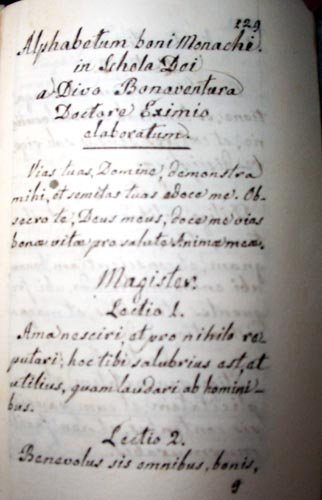 129
Alphabetum boni Monachi.
in Schola Dei
a Divo Bonaventura
Doctore Eximio
elaboratum.
Vias tuas, Domine, demonstra
mihi, et semitas tuas edoce me. Ob-
secro te, Deus meus, doce me vias
bonæ vitæ pro salute Animæ meæ.
Magister.
Lectio 1.
Ama nesciri, et pro nihilo re-
putari; hoc tibi salubrius est, et
utilius, quam laudari ab homini-
bus.
Lectio 2.
Benevolus sis omnibus, bonis,